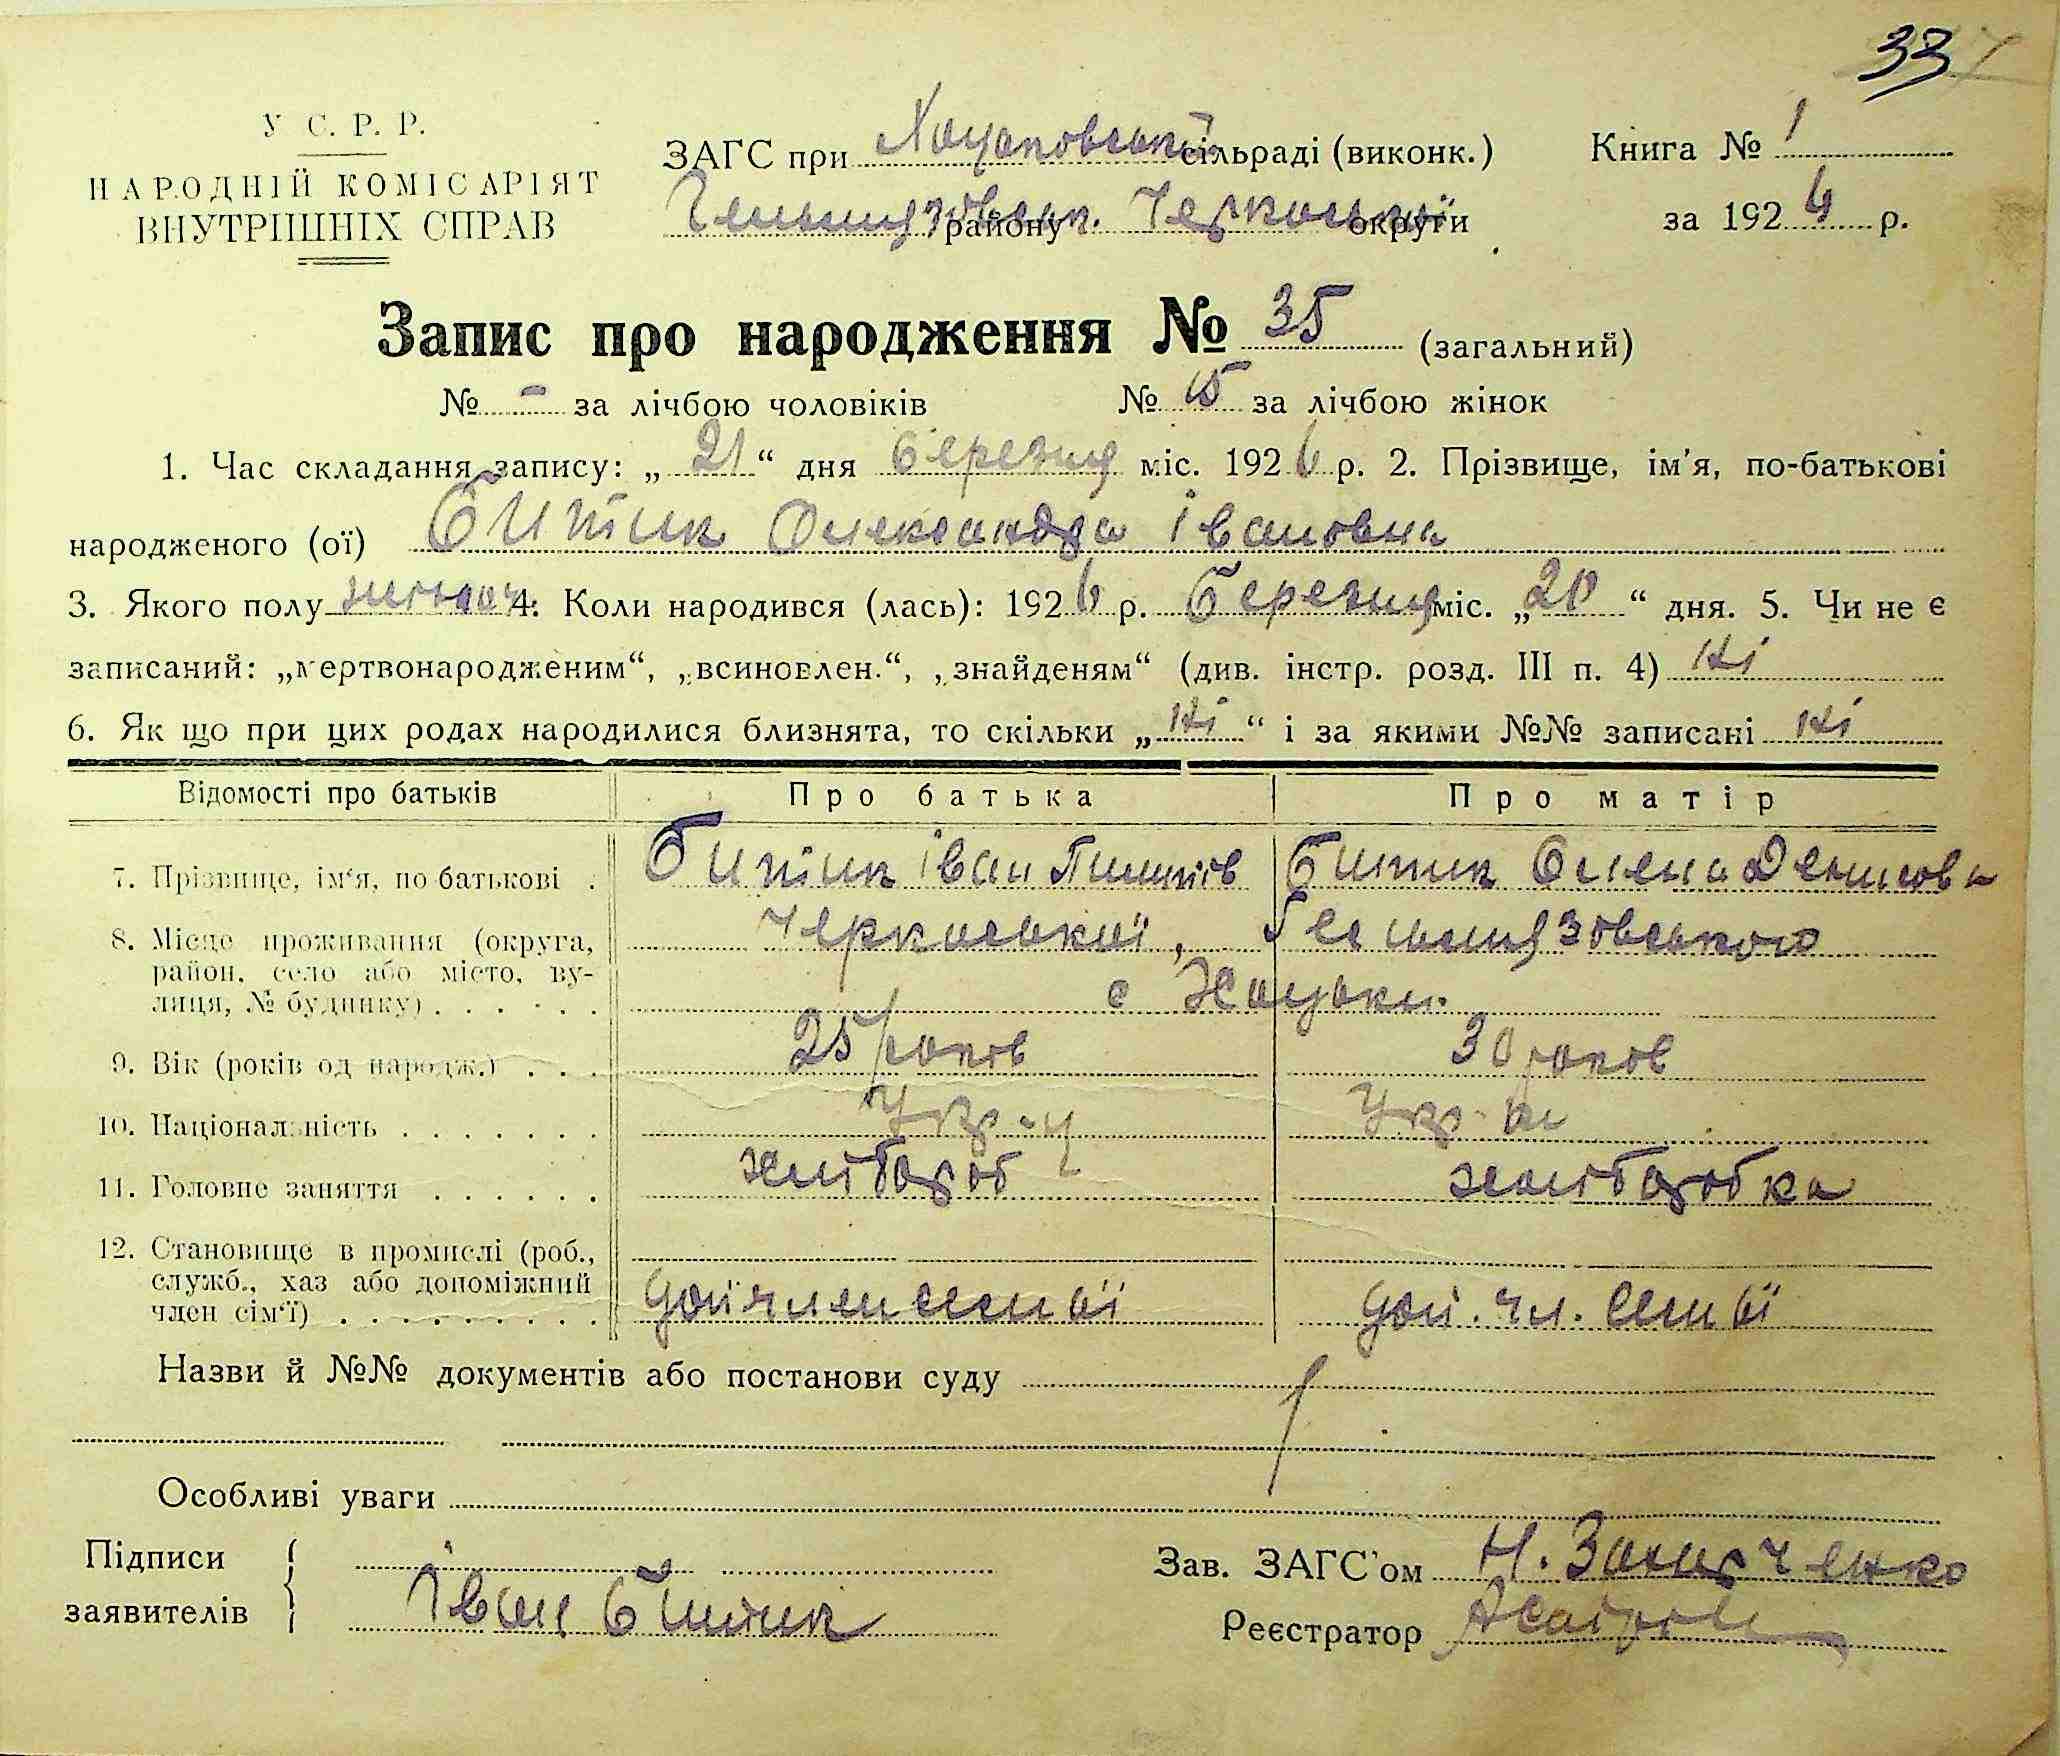 33
У С. Р. Р.
НАРОДНІЙ КОМІСАРІЯТ
ВНУТРІШНІХ СПРАВ
ЗАГС при Хацьковській сільраді (виконк.)
району Черкаської округи
Книга № 1
за 1926 р.
Запис про народження № 35 (загальний)
№ - за лічбою чоловіків № 15 за лічбою жінок
1. Час складання запису: „ 21 “ дня березня міс. 1926 р. 2. Прізвище, ім'я, по-батькові
народженого (ої) Битик Олександра Івановна
3. Якого полу жіноч. 4. Коли народився (лась): 1926 р. Березня міс. „ 20 “ дня. 5. Чи не є
записаний: „мертвонародженим“, „всиновлен.“, „знайденям“ (див. інстр. розд. III п. 4) ні
6. Як що при цих родах народилися близнята, то скільки „ ні “ і за якими №№ записані ні
Відомості про батьків Про батька Про матір
7. Прізвище, ім'я, по батькові . Битик Іван Битик Олена Денисовн
8. Місце проживання (округа, район, село або місто, вулиця, № будинку) . . . . . Черкаської,
с Хацьки.
9. Вік (років од народж.) . . . 25 років 30 років
10. Національність . . . . . . . Укр-ц Укр-ка
11. Головне заняття . . . . . . хлібороб хліборобка
12. Становище в промислі (роб., служб., хаз або допоміжний член сім'ї) . . . . . . . . . член семьї чл. семьї
Назви й №№ документів або постанови суду
Особливі уваги
Підписи
заявителів
Іван Битик
Зав. ЗАГС'ом
Реєстратор